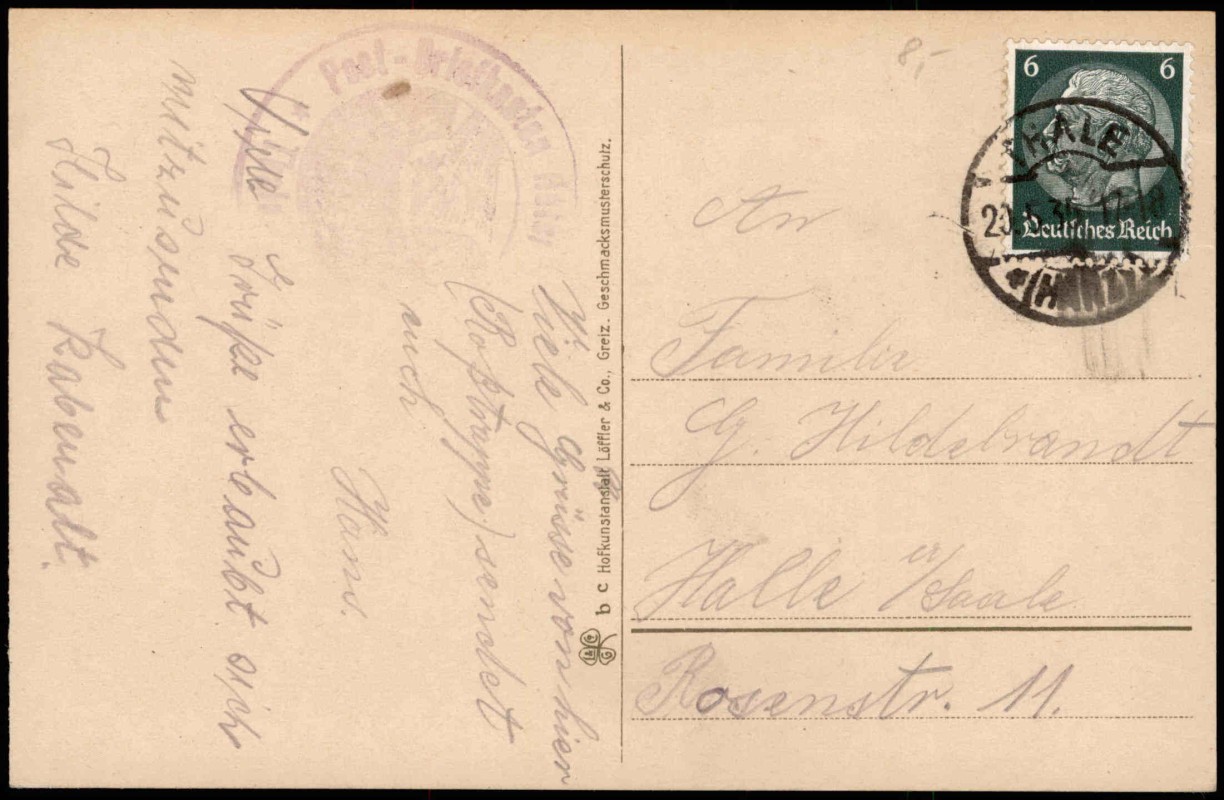 Viele Grüsse von hier
(Roßtrappe) sendet
euch
Hans.
Viele Grüße erlaubt sich
mitzusenden
Hilde
Post-Briefkasten
b c Hofkunstanstalt Löffler & Co., Greiz. Geschmacksmusterschutz.
8,-
6 6
Deutsches Reich
THALE
20.5.3 17-18
(HARZ)
An
Familie
G. Hildebrandt
Halle a/Saale
Rosenstr. 11.